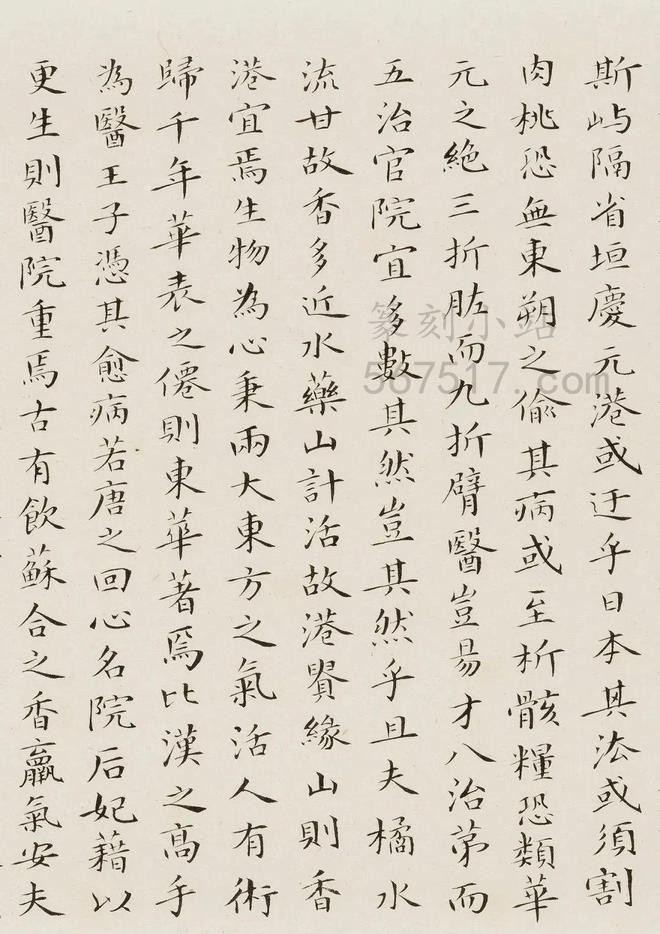 斯屿隔省垣慶元港或迂乎日本其法或須割
肉桃恐無東朔之偷其病或至析骸糧恐類華
元之絶三折肱而九折臂醫豈易才八治苐而
五治官院宜多數其然豈其然乎且夫橘水
流甘故香多近水藥山計活故港貫緣山則香
港宜焉生物為心秉兩大東方之氣活人有術
歸千年華表之僊則東華著焉比漢之高手
為醫王子憑其愈病若唐之回心名院后妃藉以
更生則醫院重焉古有飲蘇合之香羸氣安夫
篆刻小站
567517.com